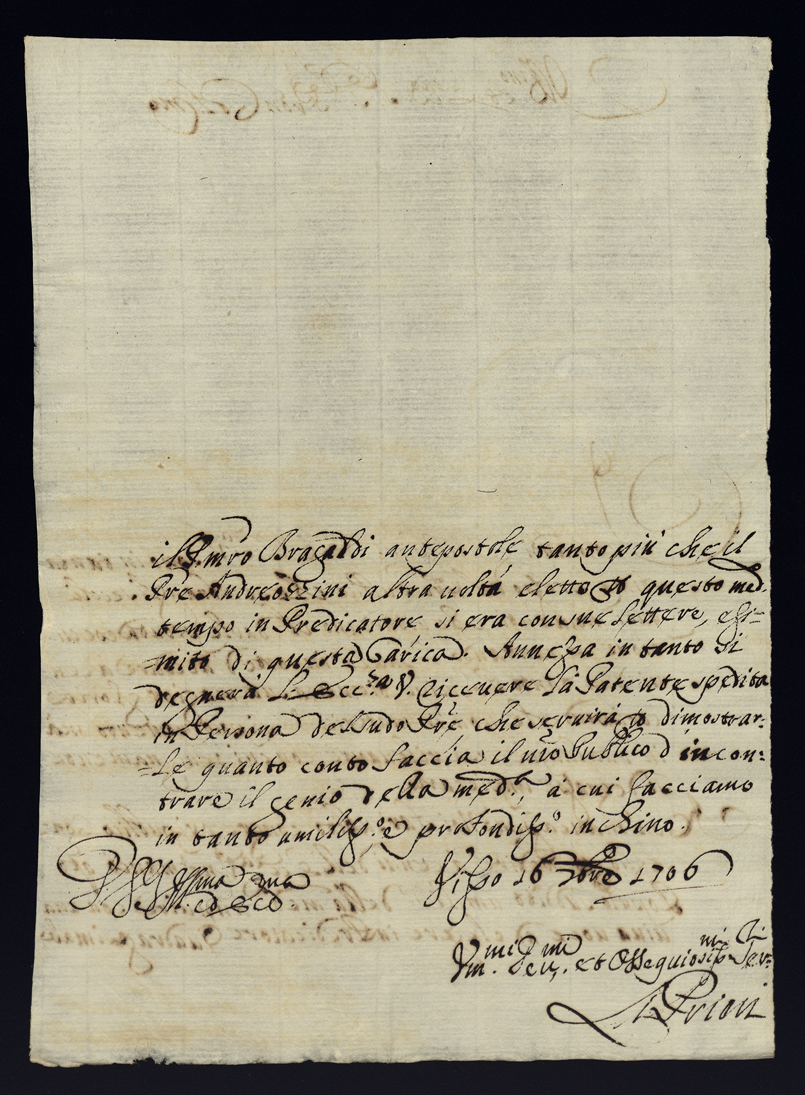 il P. Mro Bracaldi antepostole tanto più che il
Pre Andreozzini altra uolta eletto p questo med.
tempo in Predicatore si era con sue lettere, esi=
=mito di questa Carica. Annessa in tanto si
degnerà l'Ecc.za V. riceuere la Patente spedita
in Persona del sudo Pre, che seruirà p dimostrar=
=le quanto conto faccia il nro Publico d'incon=
trare il genio della med.a, à cui facciamo
in tanto umiliss.o e profondiss.o inchino.
Visso 16 1706
Umi Deu.mi et Ossequiosiss.mi Ser.ri
Li Priori